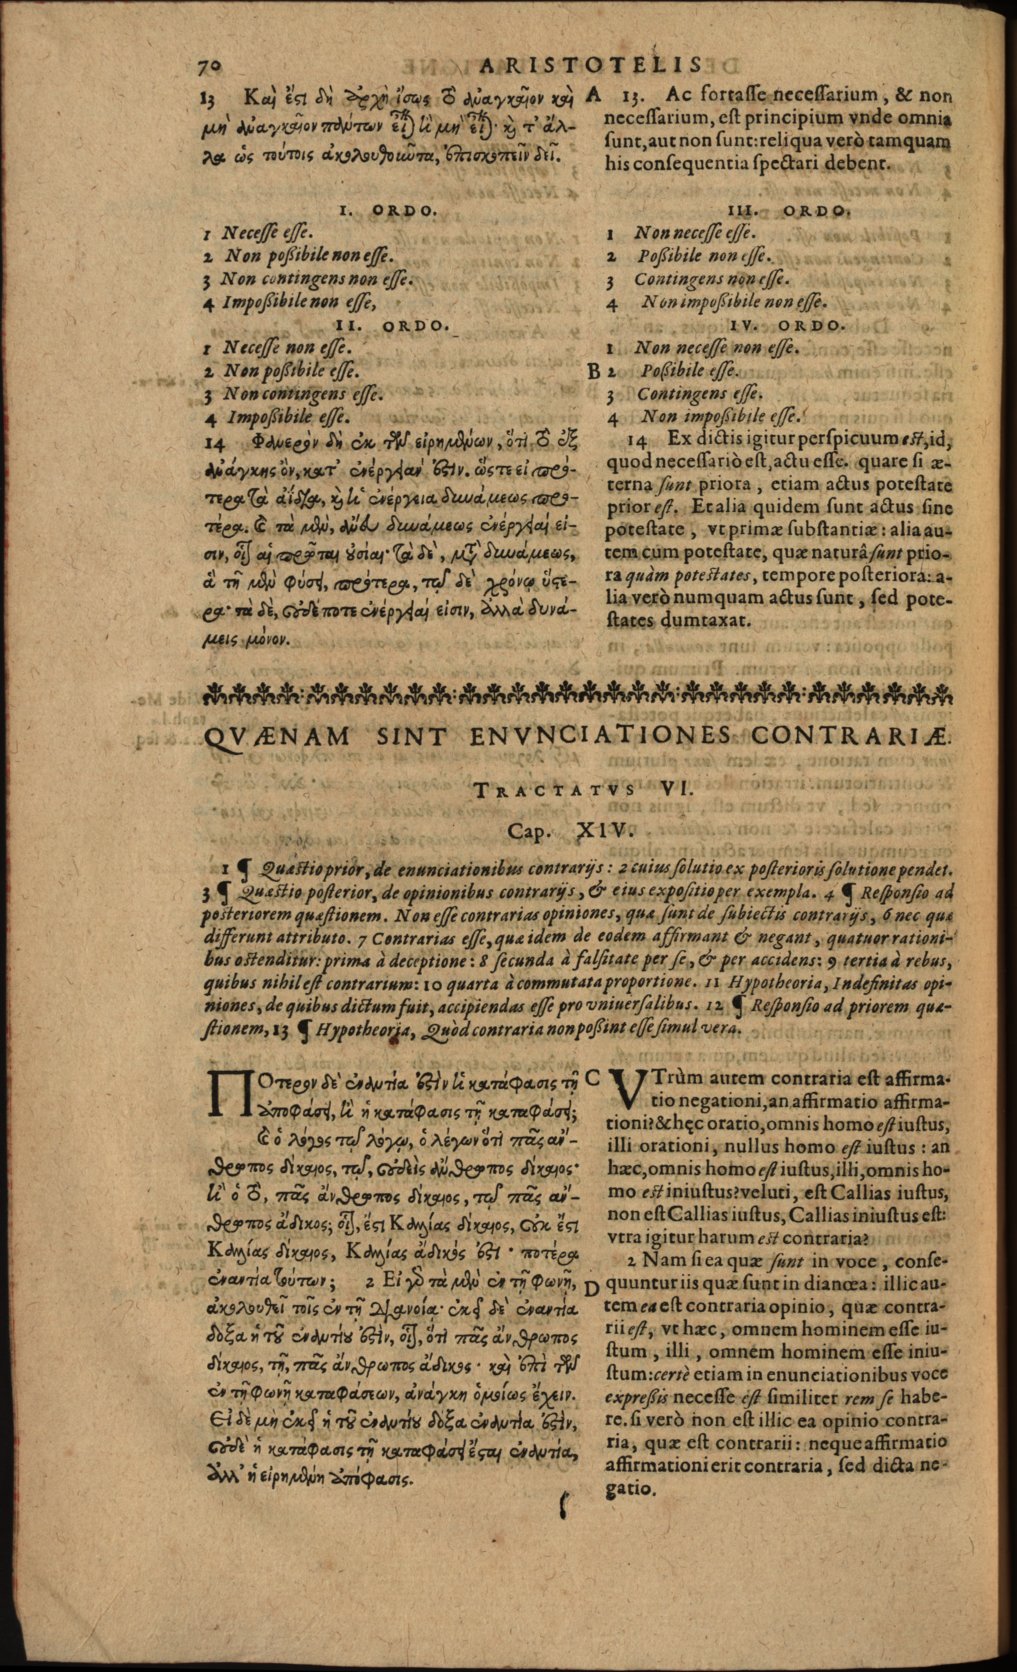 70
ARISTOTELIS
13 Καὶ ἔστι δὴ ἀρχὴ ἴσως τὸ ἀναγκαῖον καὶ
μὴ ἀναγκαῖον πάντων ἢ εἶναι ἢ μὴ εἶναι· καὶ τ' ἄλ-
λα ὡς τούτοις ἀκολουθοῦντα, ἐπισκοπεῖν δεῖ.
I. ORDO.
1 Necesse esse.
2 Non poßibile non esse.
3 Non contingens non esse.
4 Impoßibile non esse,
II. ORDO.
1 Necesse non esse.
2 Non poßibile esse.
3 Non contingens esse.
4 Impoßibile esse.
14 Φανερὸν δὴ ἐκ τῶν εἰρημένων, ὅτι τὸ ἐξ
ἀνάγκης ὂν, κατ' ἐνέργειάν ἐστιν. ὥστε εἰ πρό-
τερα τὰ ἀΐδια, καὶ ἡ ἐνέργεια δυνάμεως προ-
τέρα. καὶ τὰ μὲν, ἄνευ δυνάμεως ἐνέργειαί εἰ-
σιν, οἷον αἱ πρῶται οὐσίαι· τὰ δὲ, μετὰ δυνάμεως,
ἃ τῇ μὲν φύσει, πρότερα, τῷ δὲ χρόνῳ ὕστε-
ρα· τὰ δὲ, οὐδέποτε ἐνέργειαί εἰσιν, ἀλλὰ δυνά-
μεις μόνον.
A 13. Ac fortasse necessarium, & non
necessarium, est principium vnde omnia
sunt, aut non sunt: reliqua verò tamquam
his consequentia spectari debent.
III. ORDO.
1 Non necesse esse.
2 Poßibile non esse.
3 Contingens non esse.
4 Non impoßibile non esse.
IV. ORDO.
1 Non necesse non esse.
B 2 Poßibile esse.
3 Contingens esse.
4 Non impoßibile esse.
14 Ex dictis igitur perspicuum est, id,
quod necessariò est, actu esse. quare si æ-
terna sunt priora, etiam actus potestate
prior est. Et alia quidem sunt actus sine
potestate, vt primæ substantiæ: alia au-
tem cum potestate, quæ naturâ sunt prio-
ra quàm potestates, tempore posteriora: a-
lia verò numquam actus sunt, sed pote-
states dumtaxat.
QVÆNAM SINT ENVNCIATIONES CONTRARIÆ.
TRACTATVS VI.
Cap. XIV.
1 ¶ Quæstio prior, de enunciationibus contrarijs: 2 cuius solutio ex posterioris solutione pendet.
3 ¶ Quæstio posterior, de opinionibus contrarijs, & eius expositio per exempla. 4 ¶ Responsio ad
posteriorem quæstionem. Non esse contrarias opiniones, quæ sunt de subiectis contrarijs, 6 nec quæ
differunt attributo. 7 Contrarias esse, quæ idem de eodem affirmant & negant, quatuor rationi-
bus ostenditur: prima à deceptione: 8 secunda à falsitate per se, & per accidens: 9 tertia à rebus,
quibus nihil est contrarium: 10 quarta à commutata proportione. 11 Hypotheoria, Indefinitas opi-
niones, de quibus dictum fuit, accipiendas esse pro vniuersalibus. 12 ¶ Responsio ad priorem quæ-
stionem, 13 ¶ Hypotheoria, Quòd contraria non poßint esse simul vera.
ΠΟτερον δὲ ἐναντία ἐστὶν ἡ κατάφασις τῇ
ἀποφάσει, ἢ ἡ κατάφασις τῇ καταφάσει;
καὶ ὁ λόγος τῷ λόγῳ, ὁ λέγων ὅτι πᾶς ἄν-
θρωπος δίκαιος, τῷ, οὐδεὶς ἄνθρωπος δίκαιος·
ἢ ὁ τὸ, πᾶς ἄνθρωπος δίκαιος, τῷ πᾶς ἄν-
θρωπος ἄδικος; οἷον, ἔστι Καλλίας δίκαιος, οὐκ ἔστι
Καλλίας δίκαιος, Καλλίας ἄδικός ἐστι· ποτέρα
ἐναντία τούτων; 2 Εἰ γὰρ τὰ μὲν ἐν τῇ φωνῇ,
ἀκολουθεῖ τοῖς ἐν τῇ διανοίᾳ· ἐκεῖ δὲ ἐναντία
δόξα ἡ τοῦ ἐναντίου ἐστὶν, οἷον, ὅτι πᾶς ἄνθρωπος
δίκαιος, τῇ, πᾶς ἄνθρωπος ἄδικος· καὶ ἐπὶ τῶν
ἐν τῇ φωνῇ καταφάσεων, ἀνάγκη ὁμοίως ἔχειν.
Εἰ δὲ μὴ ἐκεῖ ἡ τοῦ ἐναντίου δόξα ἐναντία ἐστὶν,
οὐδὲ ἡ κατάφασις τῇ καταφάσει ἔσται ἐναντία,
ἀλλ' ἡ εἰρημένη ἀπόφασις.
C VTrùm autem contraria est affirma-
tio negationi, an affirmatio affirma-
tioni? & hęc oratio, omnis homo est iustus,
illi orationi, nullus homo est iustus: an
hæc, omnis homo est iustus, illi, omnis ho-
mo est iniustus? veluti, est Callias iustus,
non est Callias iustus, Callias iniustus est:
vtra igitur harum est contraria?
2 Nam si ea quæ sunt in voce, conse-
D quuntur iis quæ sunt in dianœa: illic au-
tem ea est contraria opinio, quæ contra-
rii est, vt hæc, omnem hominem esse iu-
stum, illi, omnem hominem esse iniu-
stum: certè etiam in enunciationibus voce
expreßis necesse est similiter rem se habe-
re. si verò non est illic ea opinio contra-
ria, quæ est contrarii: neque affirmatio
affirmationi erit contraria, sed dicta ne-
gatio.